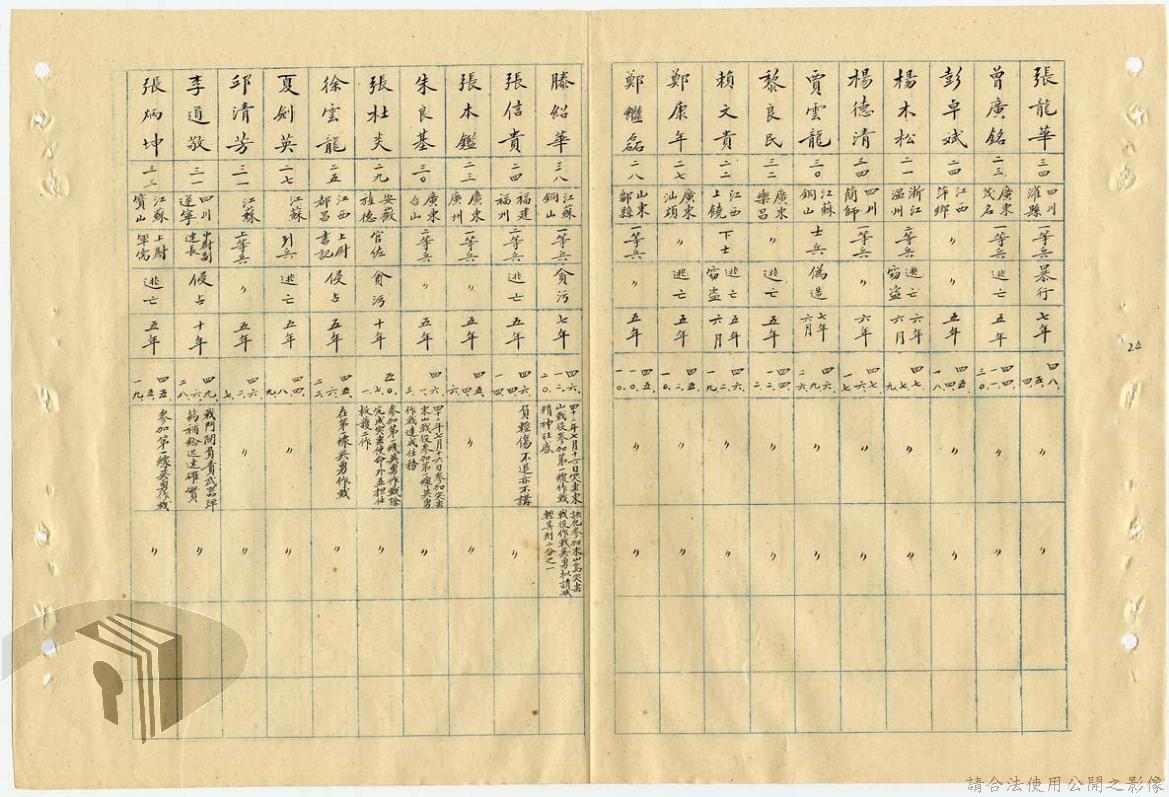 張龍華 三四 四川濰縣 一等兵 暴行 七年 四八.五.四. 〃 〃
曾廣銘 二三 廣東茂名 一等兵 逃亡 五年 〃 〃
彭卓斌 二四 江西萍鄉 〃 〃 五年 〃 〃
楊木松 二一 浙江溫州 二等兵 逃亡竊盜 六年六月 〃 〃
楊德清 三四 四川簡師 一等兵 〃 六年 〃 〃
賈雲龍 三〇 江蘇銅山 士兵 偽造 七年六月 〃 〃
賴文貴 二二 江西上饒 下士 逃亡竊盜 五年六月 〃 〃
黎良民 三二 廣東樂昌 〃 逃亡 五年 〃 〃
鄭康年 二七 廣東汕頭 〃 逃亡 五年 〃 〃
鄭繼磊 二八 山東鄒縣 一等兵 〃 五年 四五.一〇.一〇. 〃 〃
滕紹華 三八 江蘇銅山 一等兵 貪污 七年 四六.一二.二〇. 四十二年七月十六日突擊東山戰役參加第一線作戰精神旺盛 參加東山島突擊戰役作戰英勇擬請減輕其刑二分之一
張信貴 二四 福建福州 二等兵 逃亡 五年 負輕傷不退亦不講 〃
張本鑑 二三 廣東廣州 一等兵 〃 五年 〃 〃
朱良基 三〇 廣東台山 二等兵 〃 五年 四十二年七月十六日參加突擊東山戰役參加第一線英勇作戰達成任務 〃
張杜炎 二九 安徽旌德 官佐 貪污 十年 五〇.七.一〇. 參加第一線英勇作戰除完成突擊使命外並担任救護工作 〃
徐雲龍 二五 江西都昌 上尉書記 侵占 五年 在第一線英勇作戰 〃
夏劍英 二七 江蘇 列兵 逃亡 五年 〃 〃
邱清芳 三一 江蘇 上等兵 〃 五年 〃 〃
李道敬 三一 四川遂寧 中尉副連長 侵占 十年 四九.六.二八. 戰鬥間負責武器彈藥補給迅速確實 〃
張炳坤 三三 江蘇寶山 上尉軍需 逃亡 五年 四五.五.一九. 參加第一線英勇作戰 〃
24
請合法使用公開之影像